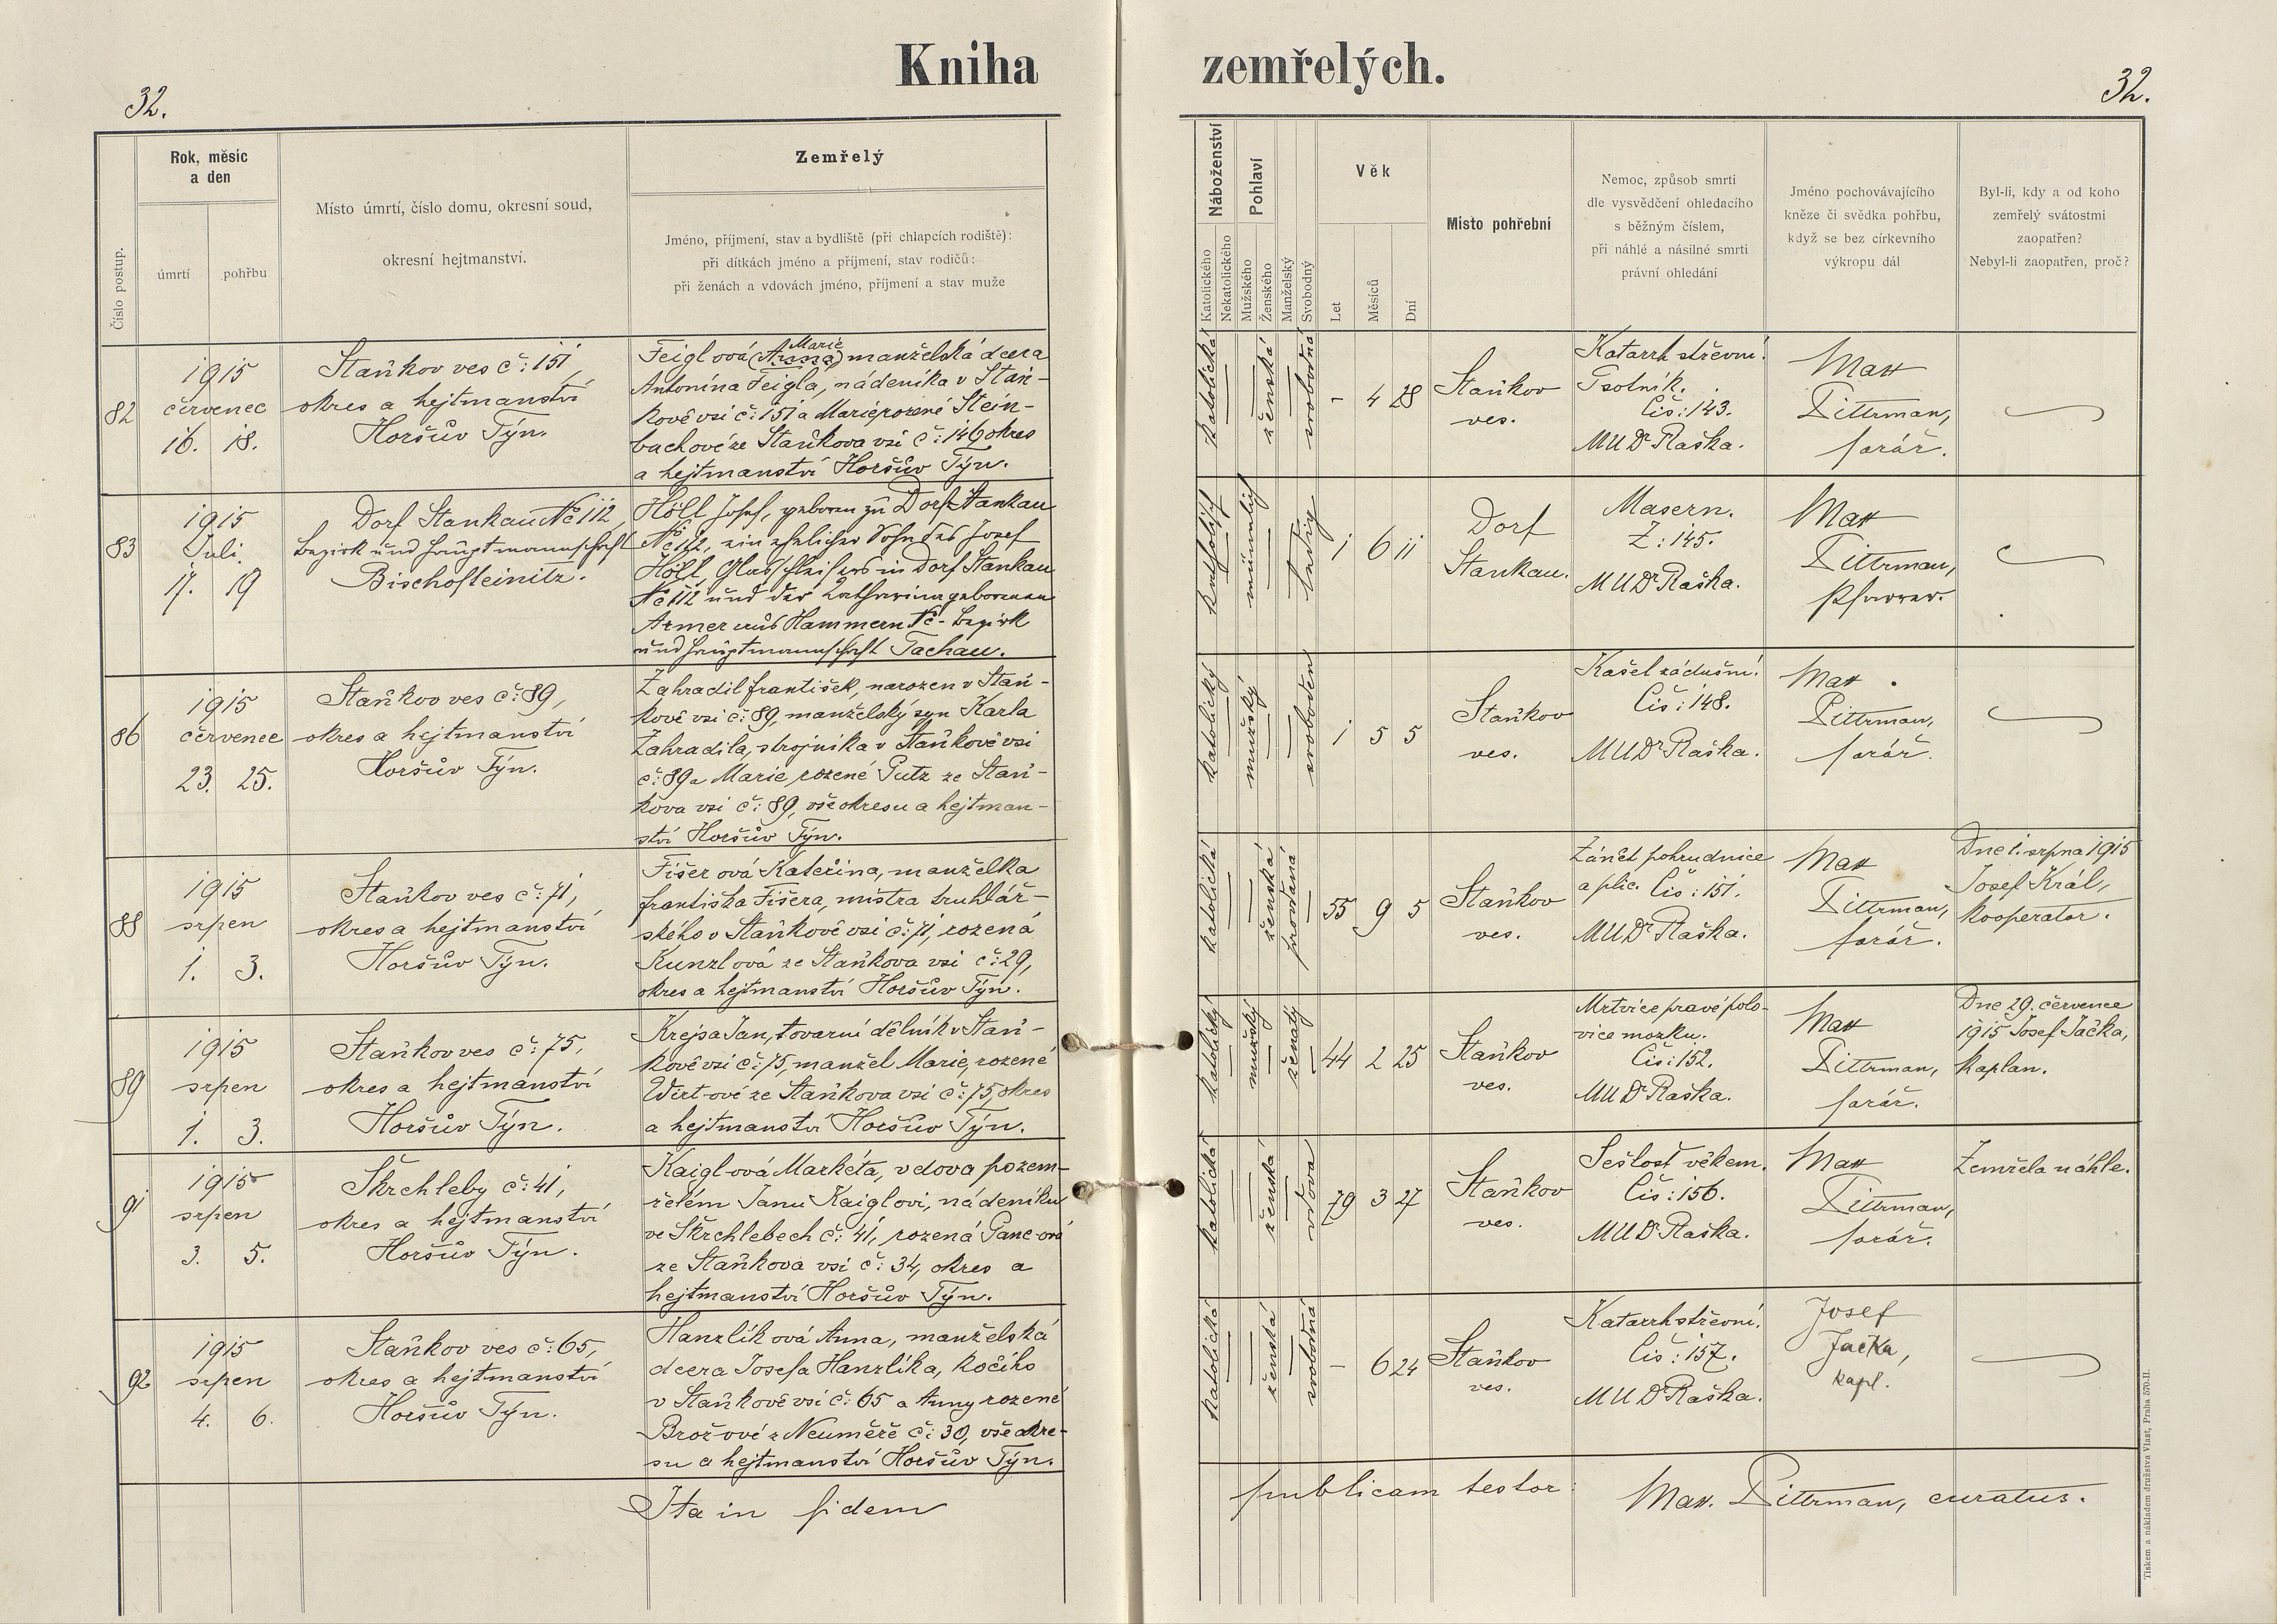 Kniha zemřelých.
32.
32.
Číslo postup.
Rok, měsíc
a den
úmrtí
pohřbu
Místo úmrtí, číslo domu, okresní soud,
okresní hejtmanství.
Zemřelý
Jméno, příjmení, stav a bydliště (při chlapcích rodiště):
při dítkách jméno a příjmení, stav rodičů:
při ženách a vdovách jméno, příjmení a stav muže
Náboženství
Katolického
Nekatolického
Pohlaví
Mužského
Ženského
Manželský
Svobodný
Věk
Let
Měsíců
Dní
Místo pohřební
Nemoc, způsob smrti
dle vysvědčení ohledacího
s běžným číslem,
při náhlé a násilné smrti
právní ohledání
Jméno pochovávajícího
kněze či svědka pohřbu,
když se bez církevního
výkropu dál
Byl-li, kdy a od koho
zemřelý svátostmi
zaopatřen?
Nebyl-li zaopatřen, proč?
82
1915
červenec
16. 18.
Staňkov ves č: 151,
okres a hejtmanství
Horšův Týn.
Marie
Feiglová (Anna) manželská dcera
Antonína Feigla, nádeníka v Staň-
kově vsi č: 151 a Marie rozené Stein-
bachové ze Staňkova vsi č: 146 okres
a hejtmanství Horšův Týn.
katolická
ženská
svobodná
- 4 28
Staňkov
ves.
Katarrh střevní.
Psotník.
Čís: 143.
MUDr Raška.
Max
Pittrman,
farář.
83
1915
Juli
17. 19
Dorf Stankau No 112,
Bezirk und Hauptmannschaft
Bischofteinitz.
Höll Josef, geboren zu Dorf Stankau
No 112, ein ehelicher Sohn des Josef
Höll, Glasschleifers in Dorf Stankau
No 112 und der Katharina geborenen
Armer aus Hammern No - Bezirk
und Hauptmannschaft Tachau.
katholisch
männlich
ledig
1 6 11
Dorf
Stankau.
Masern.
Z: 145.
MUDr Raška.
Max
Pittrman,
Pfarrer.
86
1915
červenec
23. 25.
Staňkov ves č: 89,
okres a hejtmanství
Horšův Týn.
Zahradil František, narozen v Staň-
kově vsi č: 89, manželský syn Karla
Zahradila, strojníka v Staňkově vsi
č: 89 a Marie rozené Putz ze Staň-
kova vsi č: 89, vše okresu a hejtman-
ství Horšův Týn.
katolický
mužský
svoboden
1 5 5
Staňkov
ves.
Kašel zádušní.
Čís: 148.
MUDr Raška.
Max
Pittrman,
farář.
88
1915
srpen
1. 3.
Staňkov ves č: 71,
okres a hejtmanství
Horšův Týn.
Fišerová Kateřina, manželka
Františka Fišera, mistra truhlář-
ského v Staňkově vsi č: 71, rozená
Kunzlová ze Staňkova vsi č: 29,
okres a hejtmanství Horšův Týn.
katolická
ženská
provdaná
55 9 5
Staňkov
ves.
Zánět pohrudnice
a plic. Čís: 151.
MUDr Raška.
Max
Pittrman,
farář.
Dne 1. srpna 1915
Josef Král,
kooperator.
89
1915
srpen
1. 3.
Staňkov ves č: 75,
okres a hejtmanství
Horšův Týn.
Krejsa Jan, tovarní dělník v Staň-
kově vsi č: 75, manžel Marie, rozené
Wirt-ové ze Staňkova vsi č: 75, okres
a hejtmanství Horšův Týn.
katolický
mužský
ženatý
44 2 25
Staňkov
ves.
Mrtvice pravé polo-
vice mozku.
Čís: 152.
MUDr Raška.
Max
Pittrman,
farář.
Dne 29. července
1915 Josef Jačka,
kaplan.
91
1915
srpen
3. 5.
Škrchleby č: 41,
okres a hejtmanství
Horšův Týn.
Kaiglová Markéta, vdova po zem-
řelém Janu Kaiglovi, nádeníku
ve Škrchlebech č: 41, rozená Panc-ová
ze Staňkova vsi č: 34, okres a
hejtmanství Horšův Týn.
katolická
ženská
vdova
79 3 27
Staňkov
ves.
Sešlosť věkem.
Čís: 156.
MUDr Raška.
Max
Pittrman,
farář.
Zemřela náhle.
92
1915
srpen
4. 6.
Staňkov ves č: 65,
okres a hejtmanství
Horšův Týn.
Hanzlíková Anna, manželská
dcera Josefa Hanzlíka, kočího
v Staňkově vsi č: 65 a Anny rozené
Brož-ové z Neuměře č: 30, vše okre-
su a hejtmanství Horšův Týn.
katolická
ženská
svobodná
- 6 24
Staňkov
ves.
Katarrh střevní.
Čís: 157.
MUDr Raška.
Josef
Jačka,
kapl.
Ita in fidem publicam testor: Max. Pittrman, curatus.
Tiskem a nákladem družstva Vlast, Praha 570-II.